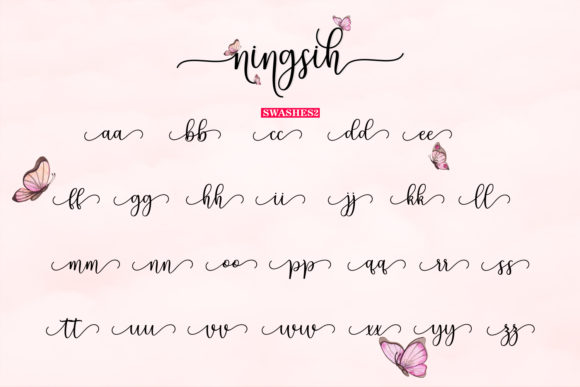 ningsih
SWASHES2
aa bb cc dd ee
ff gg hh ii jj kk ll
mm nn oo pp qq rr ss
tt uu vv ww xx yy zz